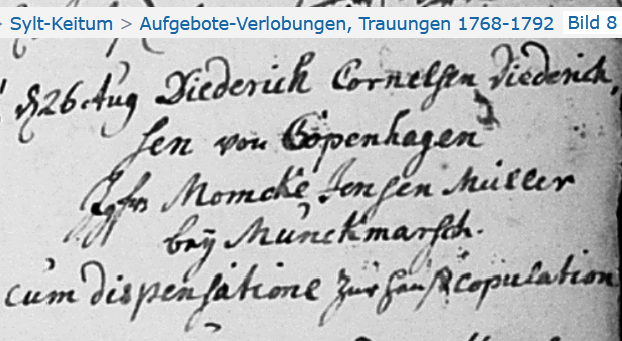 > Sylt-Keitum > Aufgebote-Verlobungen, Trauungen 1768-1792 Bild 8
26 Aug Diederich Cornelsen Diederich,
sen von Copenhagen
Jgfr Momcke Jensen Müller
bey Munckmarsch.
cum dispensatione zur Hauß copulation